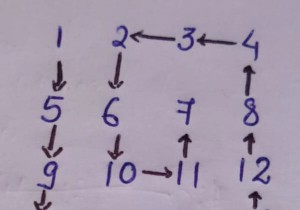 1 2 ← 3 ← 4
↓ ↓ ↑
5 6 7 8
↓ ↓ ↑ ↑
9 10 → 11 12
↓ ↑